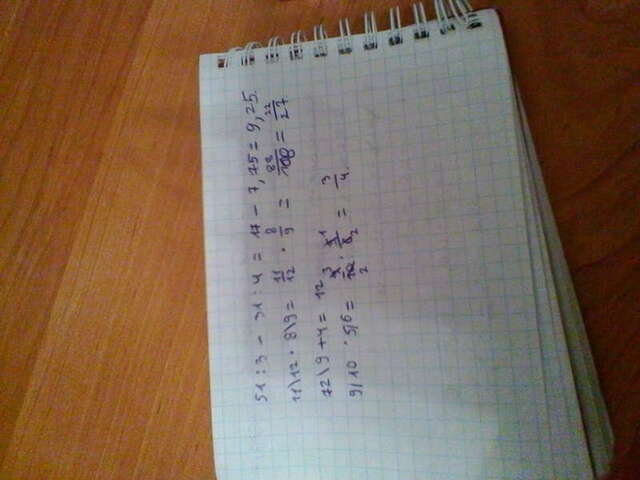 51 : 3 - 31 : 4 = 17 - 7,75 = 9,25.
11\12 · 8\9 = 11/12 · 8/9 = 88/108 = 22/27
72\9 + 4 = 12
9/10 · 5/6 = 9 3/10 2 · 5 1/6 2 = 3/4.